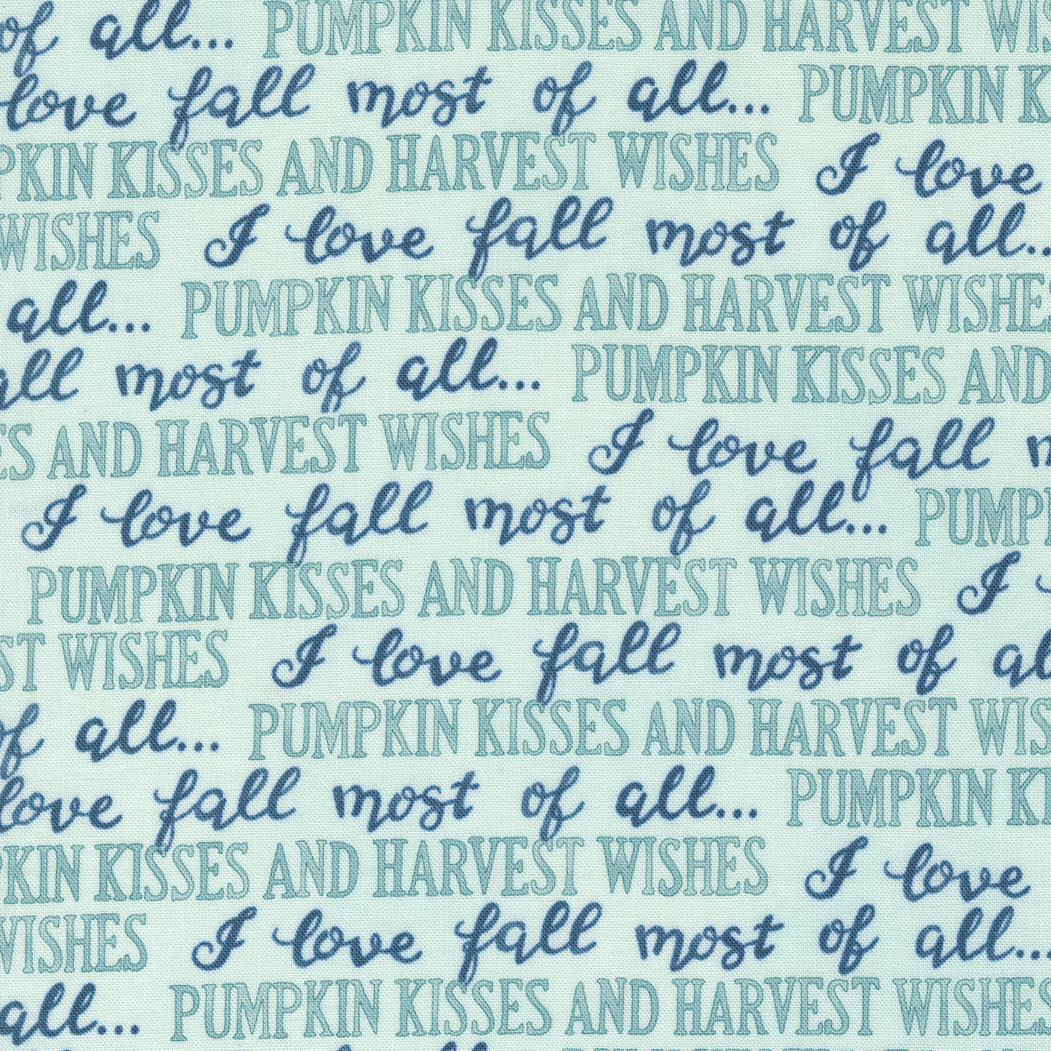 of all... PUMPKIN KISSES AND HARVEST WIS
love fall most of all... PUMPKIN K
PKIN KISSES AND HARVEST WISHES I love
WISHES I love fall most of all...
all... PUMPKIN KISSES AND HARVEST WISHES
all most of all... PUMPKIN KISSES AND
ES AND HARVEST WISHES I love fall m
I love fall most of all... PUMP
PUMPKIN KISSES AND HARVEST WISHES I
ST WISHES I love fall most of al
of all... PUMPKIN KISSES AND HARVEST WIS
love fall most of all... PUMPKIN KI
KIN KISSES AND HARVEST WISHES I love
WISHES I love fall most of all...
all... PUMPKIN KISSES AND HARVEST WISHES